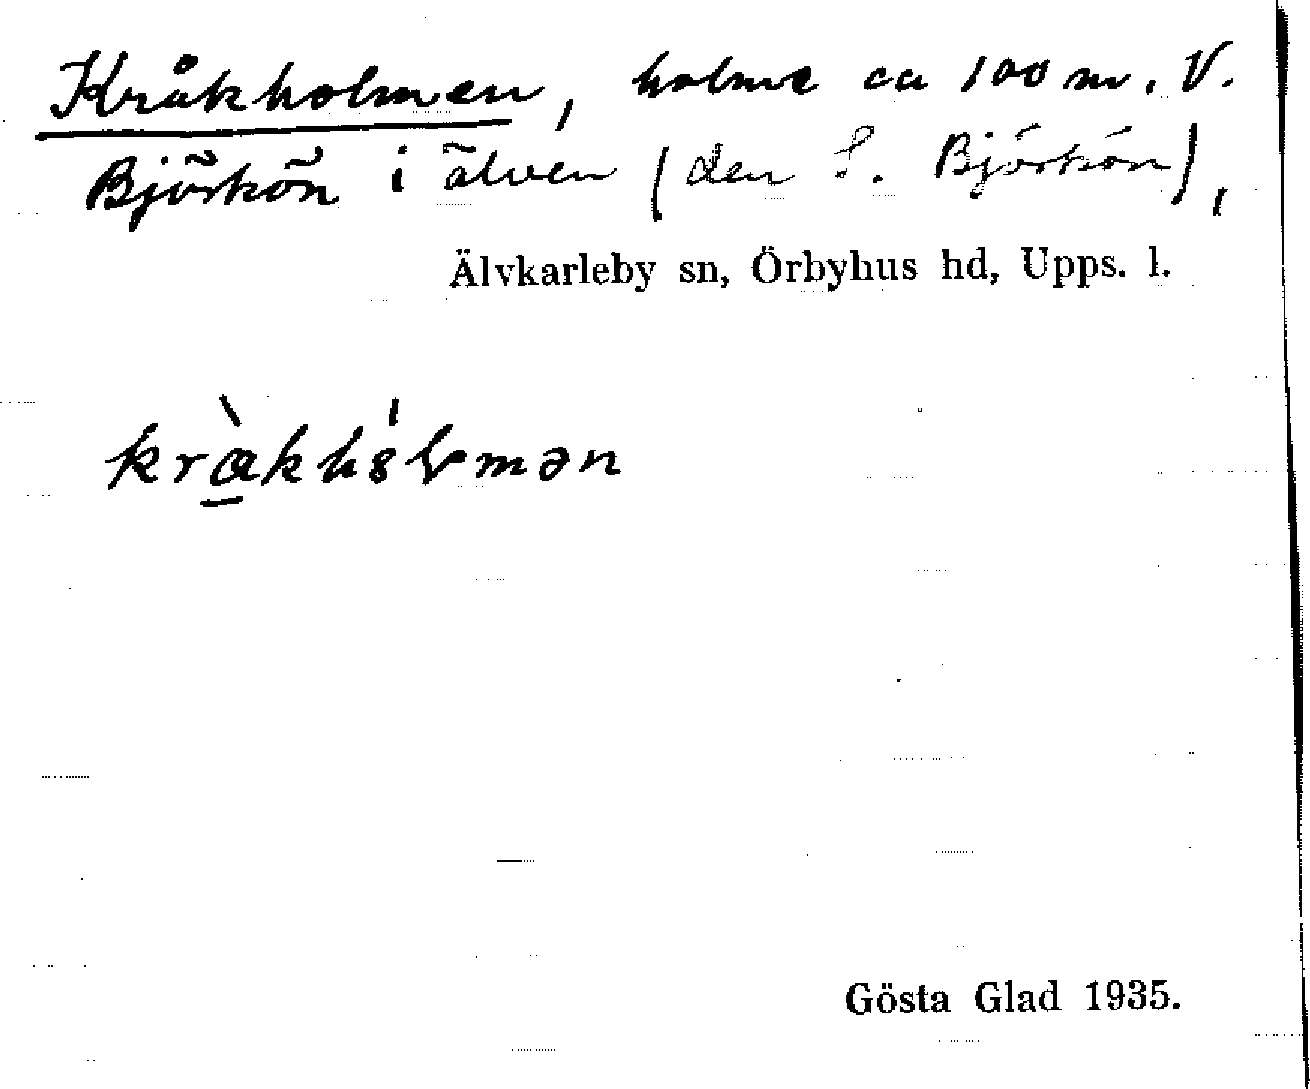 Kråkholmen, holme ca 100 m. V.
Björkön i älven (den S. Björkön),
Älvkarleby sn, Örbyhus hd, Upps. l.
Gösta Glad 1935.